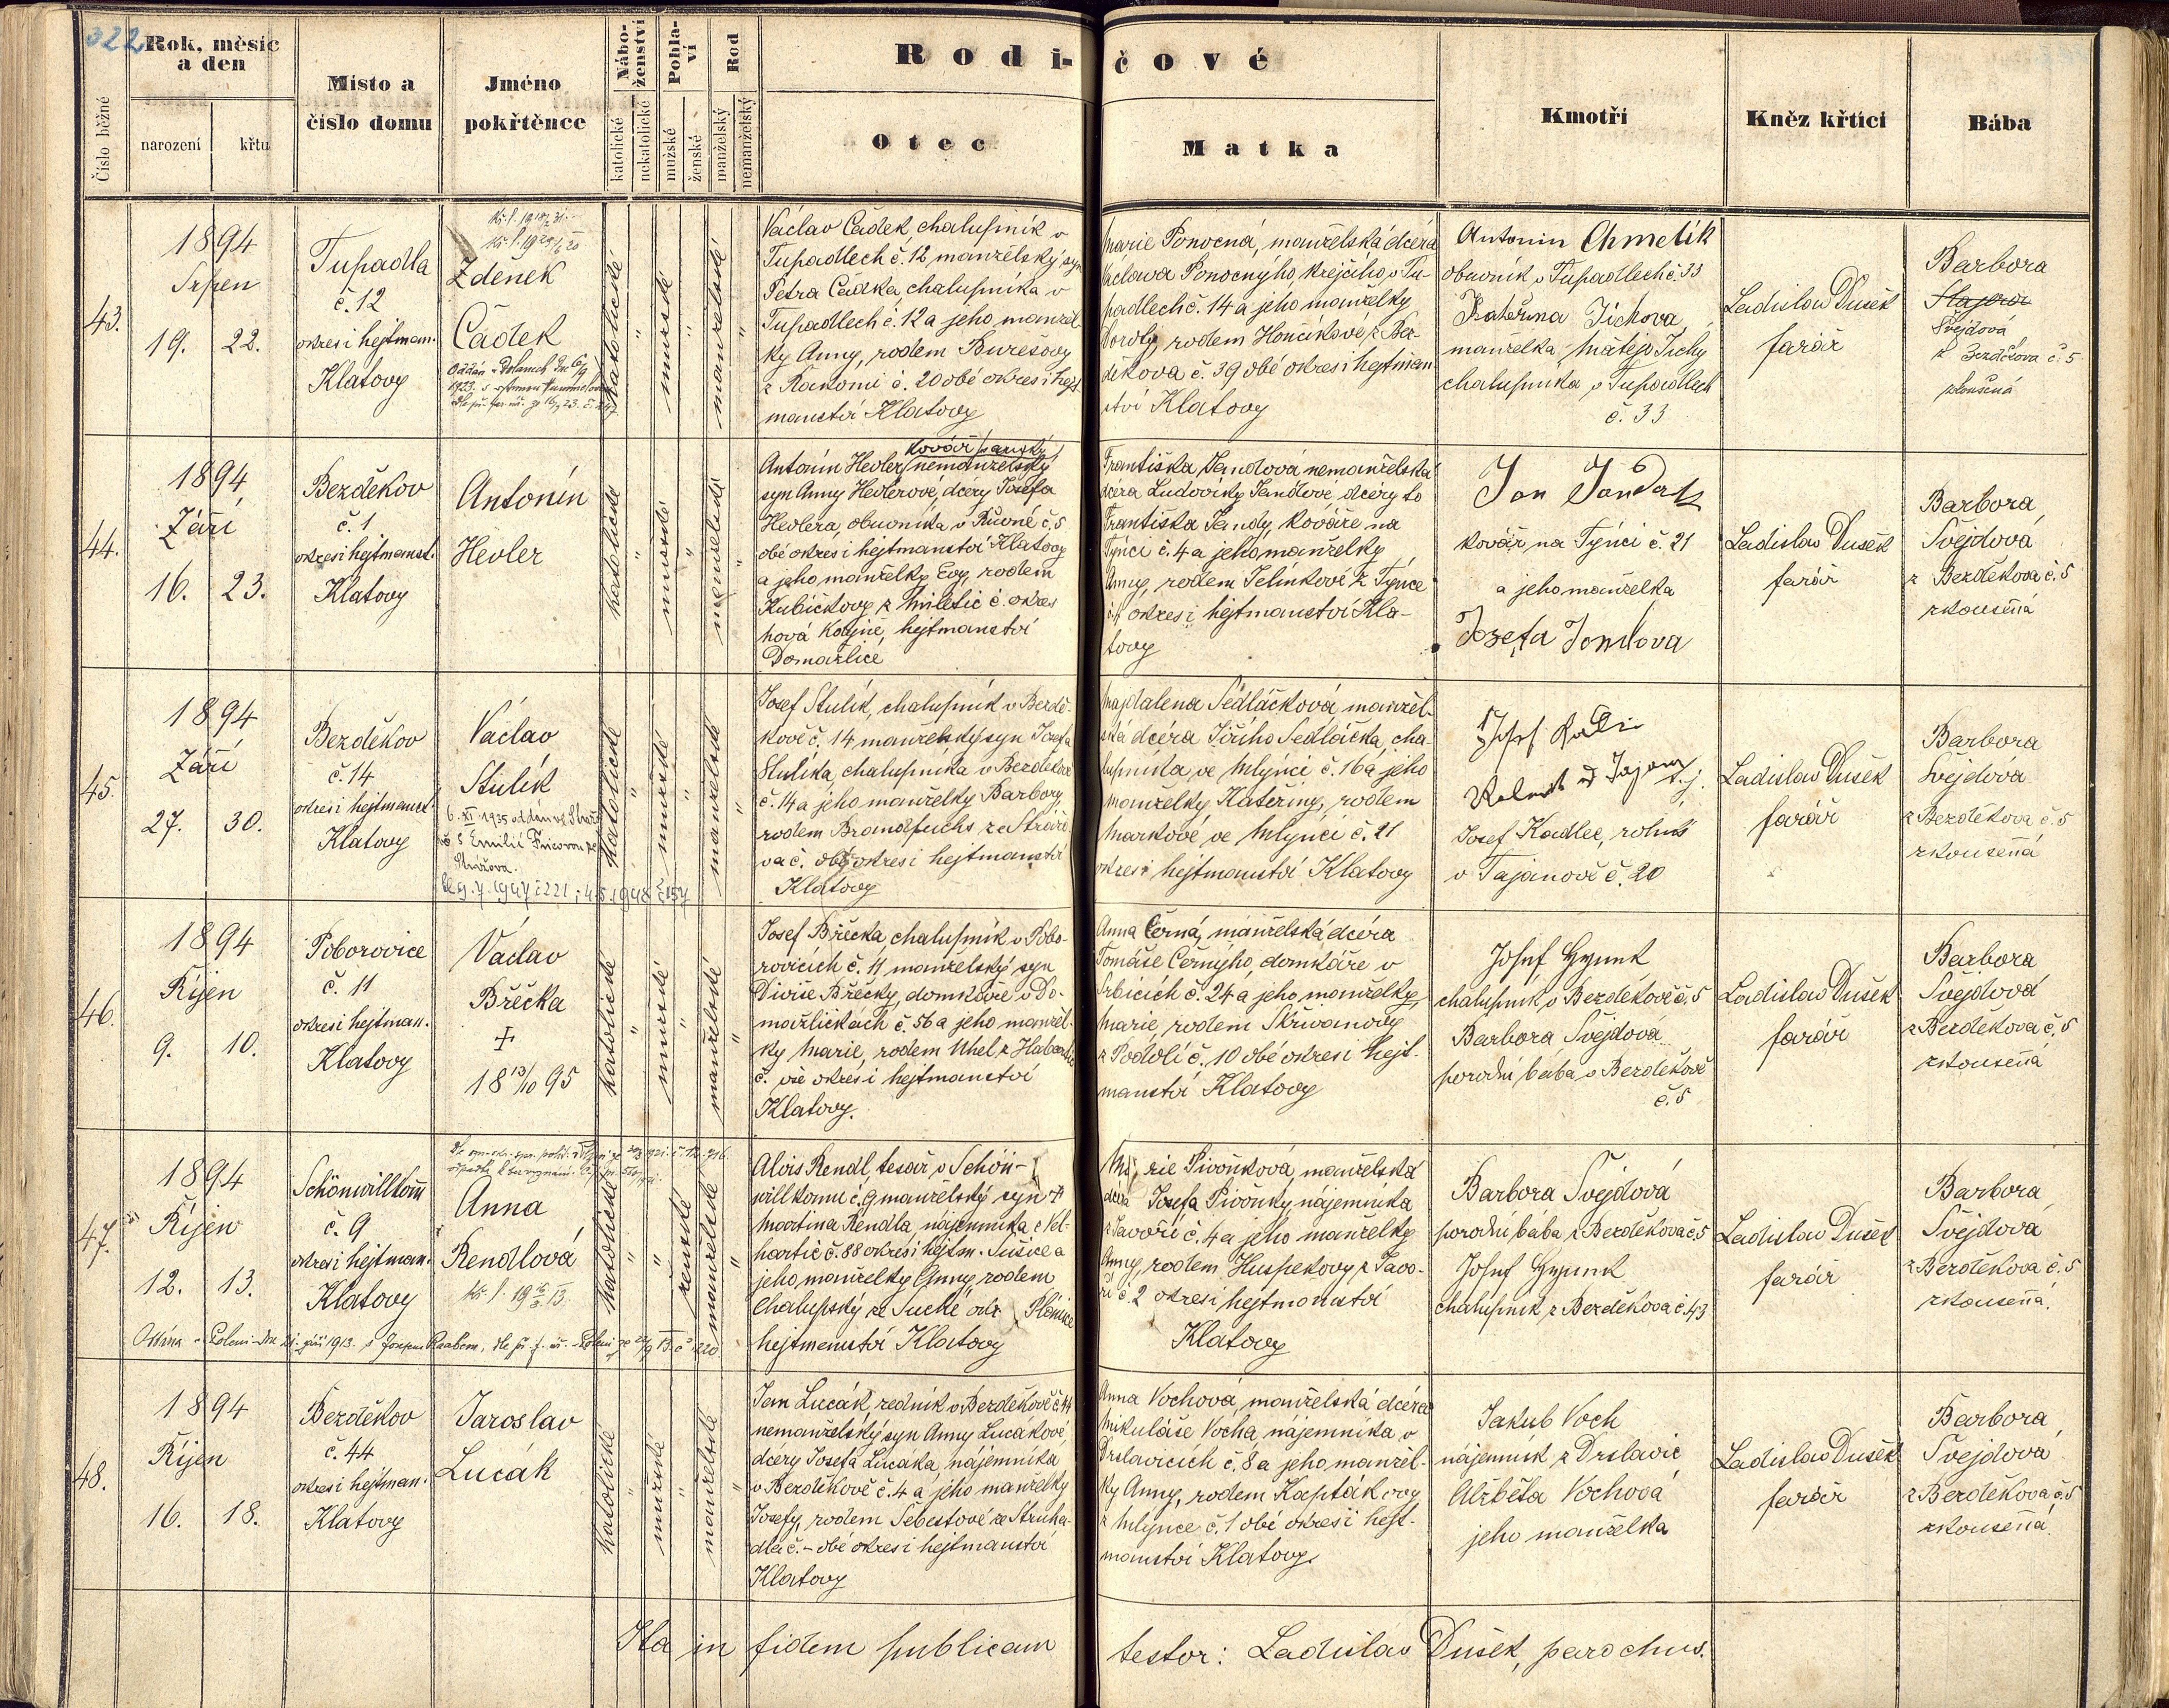 322
Rok, měsíc
a den
Číslo běžné
narození
křtu
Místo a
číslo domu
Jméno
pokřtěnce
Nábo-
ženství
katolické
nekatolické
Pohla-
ví
mužské
ženské
Rod
manželský
nemanželský
Rodi-
čové
Otec
Matka
Kmotři
Kněz křtící
Bába
43.
1894
Srpen
19. 22.
Tupadla
č. 12
okres i hejtman.
Klatovy
Zdeněk
Čadek
katolické
"
mužské
"
manželské
"
Václav Čadek chalupník v
Tupadlech č. 12 manželský syn
Petra Čadka, chalupníka v
Tupadlech č. 12 a jeho manžel-
ky Anny, rodem Burešovy
z Rakomi č. 20 obé okres i hejt-
manství Klatovy
Marie Ponocná, manželská dcera
Václava Ponocnýho, krejčího v Tu-
padlech č. 14 a jeho manželky
Doroty, rodem Hončíkové z Bez-
děkova č. 39 obé okres i hejtman-
ství Klatovy
Antonin Chmelík
obuvník v Tupadlech č. 33
Kateřina Tichova,
manželka Matěje Tichý
chalupníka v Tupadlech
č. 33
Ladislav Dušek
farář
Barbora
Švejdová
z Bezděkova č. 5
zkoušená
44.
1894
Září
16. 23.
Bezděkov
č. 1
okres i hejtmanst.
Klatovy
Antonín
Hevler
katolické
"
mužské
"
manželské
"
kovář panský
Antonín Hevler nemanželský
syn Anny Hevlerové, dcéry Josefa
Hevlera, obuvníka v Řuvné č. 5
obé okres i hejtmanství Klatovy
a jeho manželky Evy, rodem
Kubíčkovy z Miletic č. okres
hová Kdyně, hejtmanství
Domažlice
Františka Jandová nemanželská
dcéra Ludoviky Jandové, dcéry to
Františka Jandy, kováře na
Týnci č. 4 a jeho manželky
Anny, rodem Jelínkové z Týnce
č. 4 okres i hejtmanství Kla-
tovy
Jan Janda
kovář na Týnci č. 21
a jeho manželka
Josefa Jandova
Ladislav Dušek
farář
Barbora
Švejdová
z Bezděkova č. 5
zkoušená
45.
1894
Září
27. 30.
Bezděkov
č. 14
okres i hejtmanst.
Klatovy
Václav
Stulík
katolické
"
mužské
"
manželské
"
Josef Stulík, chalupník v Bezdě-
kově č. 14 manželský syn Josefa
Stulíka, chalupníka v Bezděkově
č. 14 a jeho manželky Barbory,
rodem Brandfuchs ze Strážo-
va č. obé okres i hejtmanství
Klatovy
Majdalena Sedláčková manžel-
ská dcéra Jiřího Sedláčka, cha-
lupníka, ve Mlýnci č. 16 a jeho
manželky Kateřiny, rodem
Markové ve Mlýnci č. 21
okres i hejtmanství Klatovy
Josef Kadlec, rolník
v Tajanově č. 20
Ladislav Dušek
farář
Barbora
Švejdová
z Bezděkova č. 5
zkoušená
46.
1894
Říjen
9. 10.
Poborovice
č. 11
okres i hejtman.
Klatovy
Václav
Břečka
+
18 13/10 95
katolické
"
mužské
"
manželské
"
Josef Břečka chalupník v Pobo-
rovicích č. 11 manželský syn
Diviše Břečky, domkáře v Do-
mažličkách č. 56 a jeho manžel-
ky Marie, rodem Uhel z Habartic
č. vše okres i hejtmanství
Klatovy.
Anna Černá, manželská dcéra
Tomáše Černýho, domkáře v
Srbicích č. 24 a jeho manželky
Marie, rodem Skřivanovy
z Podolí č. 10 obé okres i hejt-
manství Klatovy
chalupník v Bezděkově č. 5
Barbora Švejdová
porodní bába v Bezděkově
č. 5
Ladislav Dušek
farář
Barbora
Švejdová
z Bezděkova č. 5
zkoušená
47.
1894
Říjen
12. 13.
Schönwillkom̄
č. 9
okres i hejtman.
Klatovy
Anna
Rendlová
katolické
"
"
ženské
manželské
"
Alois Rendl, tesař v Schön-
willkomu č. 9 manželský syn +
Martina Rendla, nájemníka z Vel-
hartic č. 88 okres i hejtm. Sušice a
jeho manželky Anny, rodem
Chalupský ze Suché okr. Plánice
hejtmanství Klatovy
Marie Pivoňková, manželská
dcéra Josefa Pivoňky, nájemníka
z Javoří č. 4 a jeho manželky
Anny, rodem Huspekovy z Javo-
ří č. 2 okres i hejtmanství
Klatovy
Barbora Švejdová
porodní bába z Bezděkova č. 5
chalupník z Bezděkova č. 43
Ladislav Dušek
farář
Barbora
Švejdová
z Bezděkova č. 5
zkoušená.
48.
1894
Říjen
16. 18.
Bezděkov
č. 44
okres i hejtman.
Klatovy
Jaroslav
Lucák
katolické
"
mužské
"
manželské
"
Jan Lucák, zedník v Bezděkově č. 44
nemanželský syn Anny Lucákové,
dcéry Josefa Lucáka, nájemníka
v Bezděkově č. 4 a jeho manželky
Josefy, rodem Šebestové ze Struha-
dla č. - obé okres i hejtmanství
Klatovy
Anna Vochová, manželská dcéra
Mikuláše Vocha, nájemníka, v
Drslavicích č. 8 a jeho manžel-
ky Anny, rodem Kaptákovy
z Mlýnce č. 1 obé okres i hejt-
manství Klatovy.
Jakub Voch
nájemník z Drslavic
Alžběta Vochová
jeho manželka
Ladislav Dušek
farář
Barbora
Švejdová
z Bezděkova č. 5
zkoušená.
Ita in fidem publicam
testor: Ladislav Dušek, parochus.